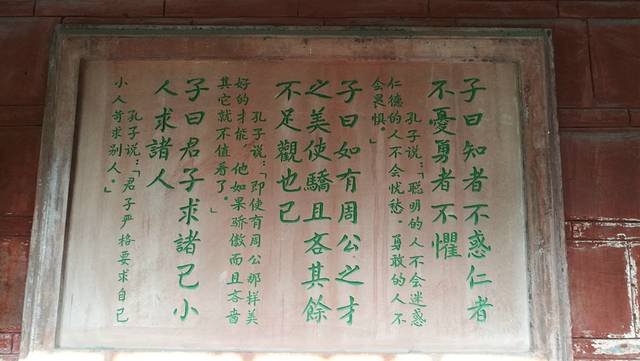 子曰知者不惑仁者
不憂勇者不懼
孔子说：「聪明的人不会迷惑
仁德的人不会忧愁。勇敢的人不
会畏惧。」
子曰如有周公之才
之美使驕且吝其餘
不足觀也已
孔子说：「即使有周公那样美
好的才能，他如果骄傲而且吝啬
其它就不值看了。」
子曰君子求諸己小
人求諸人
孔子说：「君子严格要求自己
小人苛求别人。」